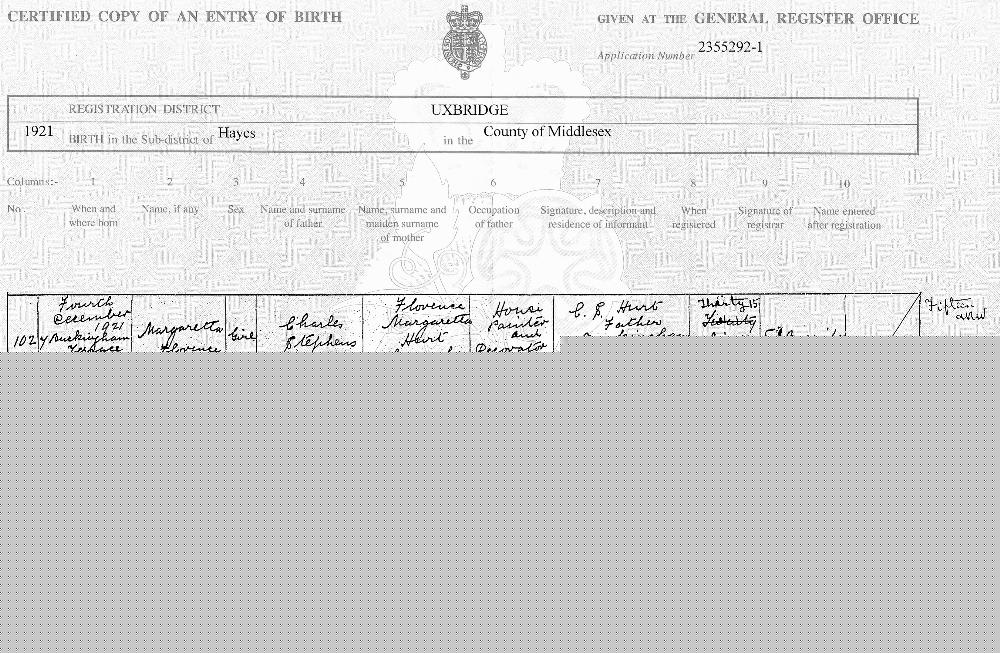 CERTIFIED COPY OF AN ENTRY OF BIRTH
GIVEN AT THE GENERAL REGISTER OFFICE
Application Number 2355292-1
REGISTRATION DISTRICT UXBRIDGE
1921 BIRTH in the Sub-district of Hayes in the County of Middlesex
Columns:- 1 2 3 4 5 6 7 8 9 10
No. When and where born Name, if any Sex Name and surname of father Name, surname and maiden surname of mother Occupation of father Signature, description and residence of informant When registered Signature of registrar Name entered after registration
102
Fourth
December
1921
7 Buckingham
Terrace
Margaretta
Florence
Girl
Charles
Stephens
Florence
Margaretta
Hurt
House
Painter
and
Decorator
C. S. Hurt
Father
15
Fifteen